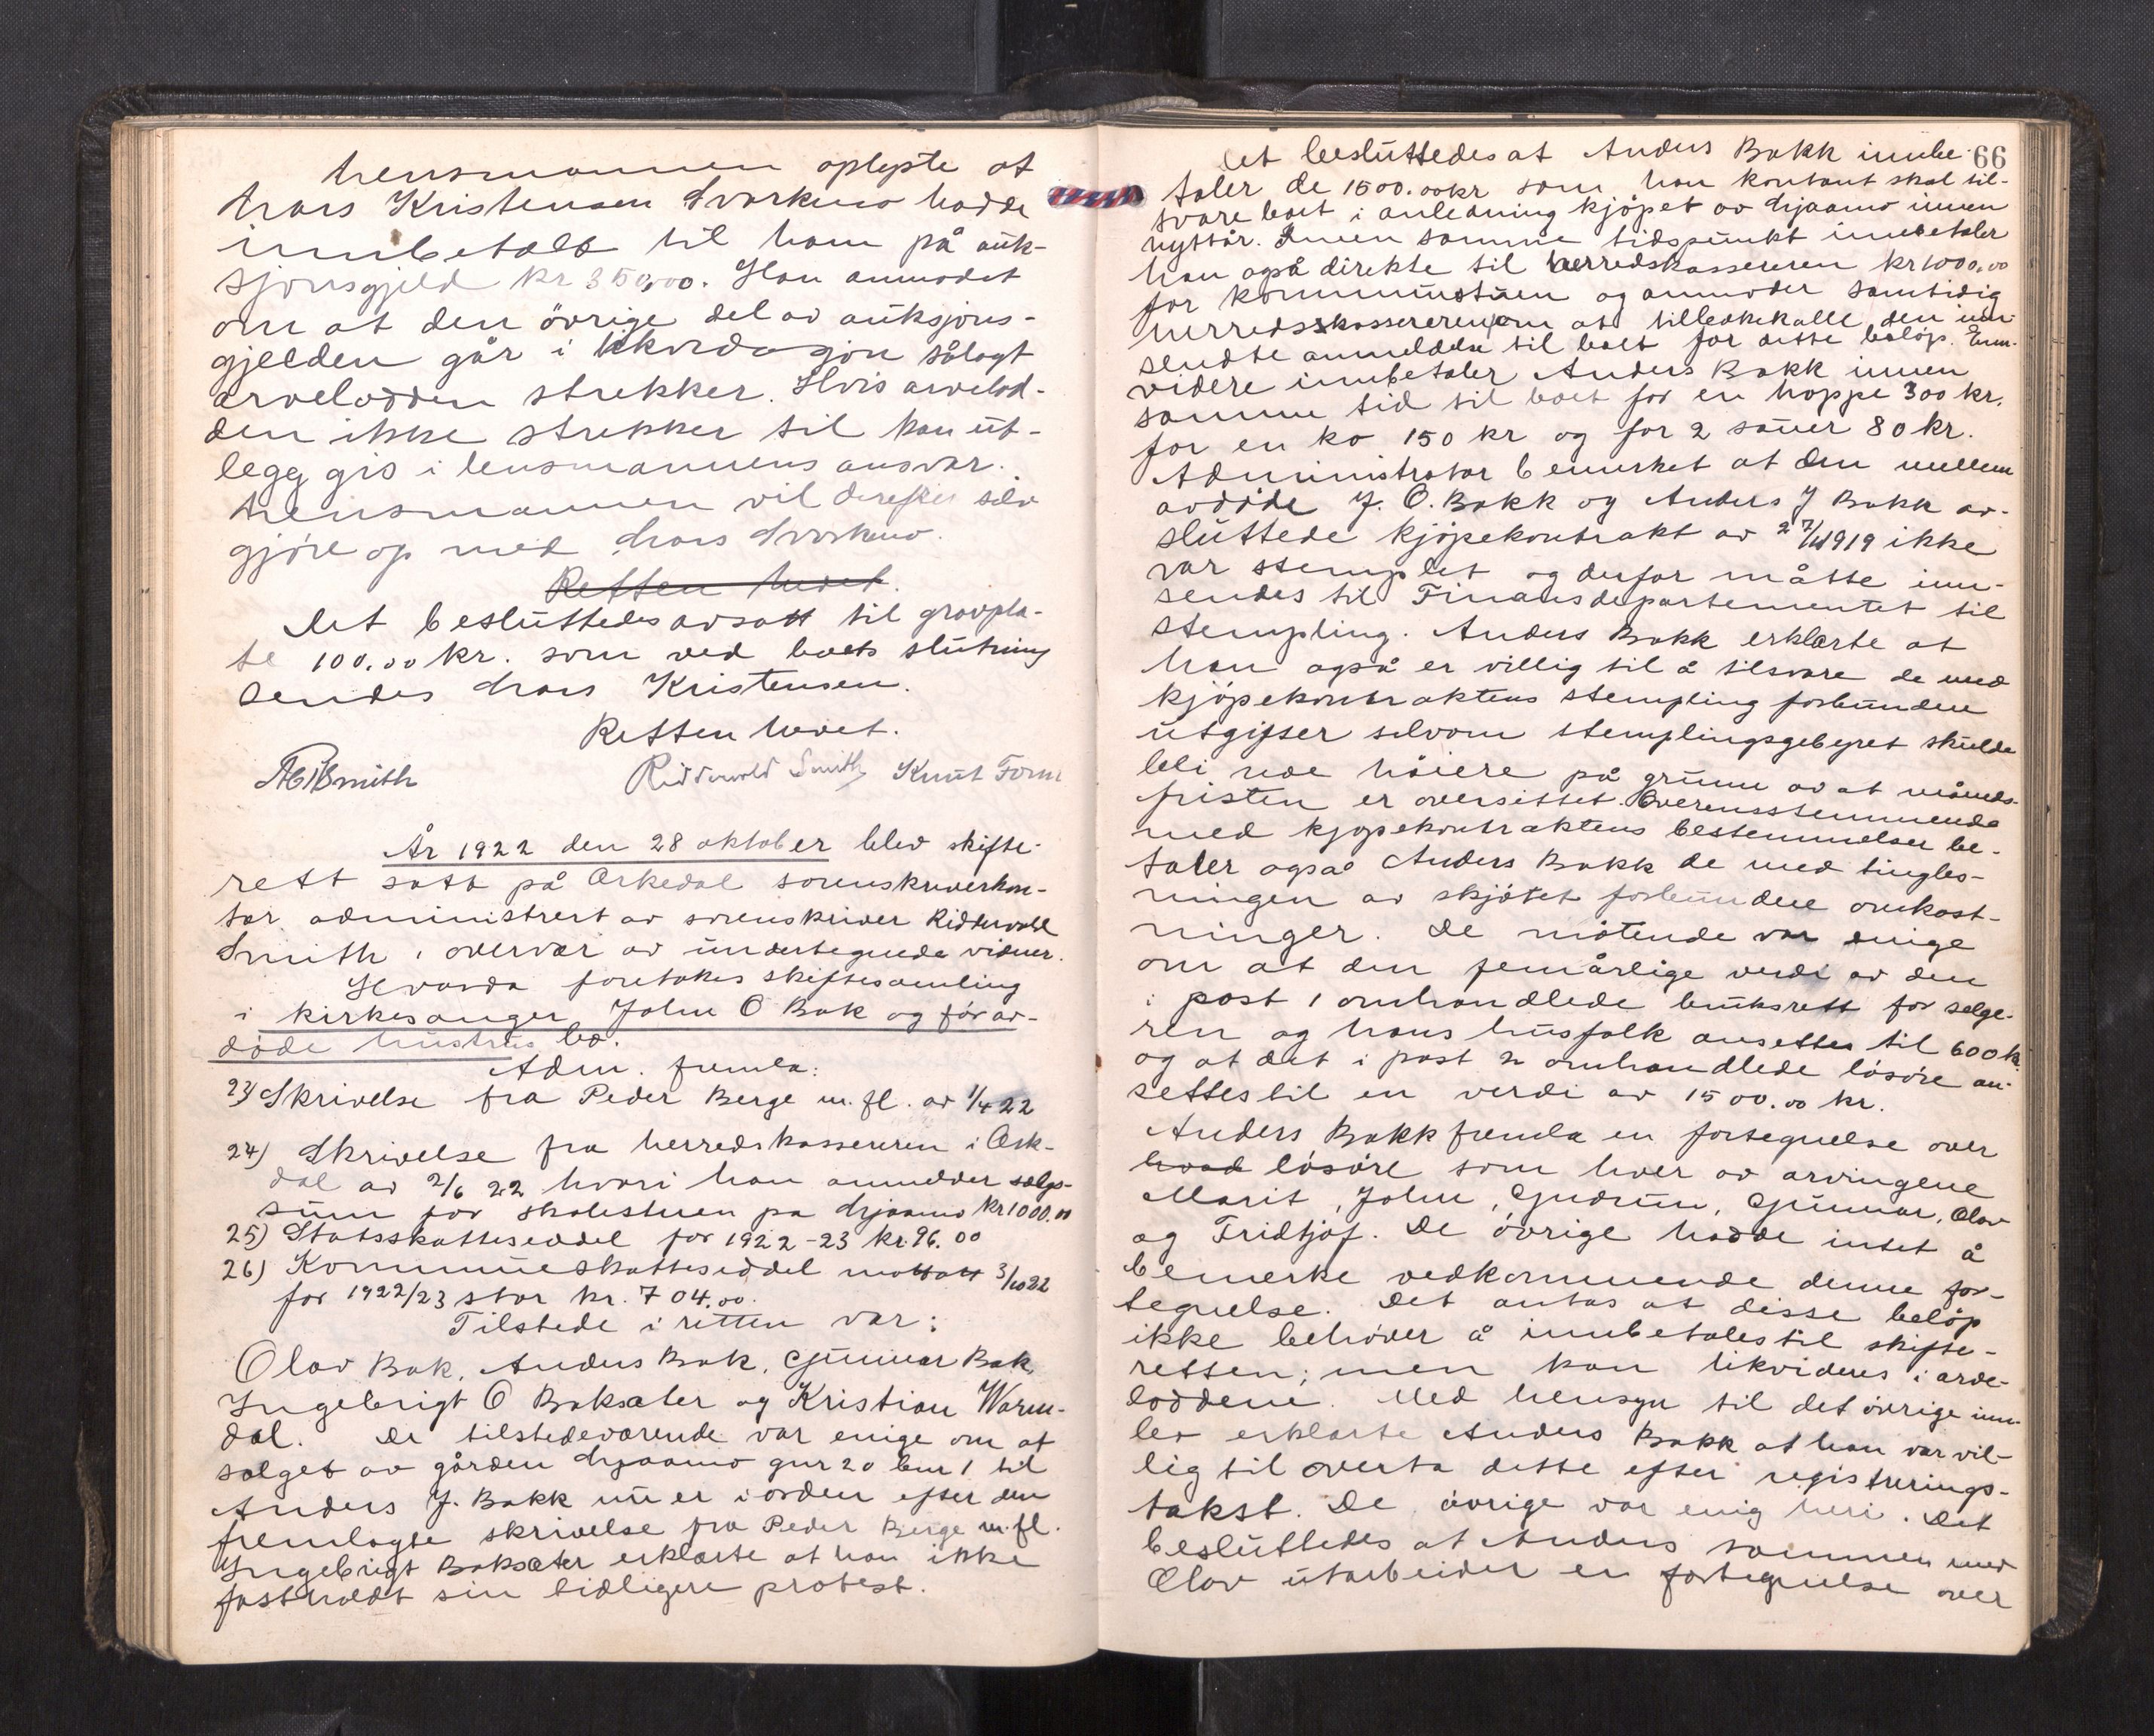 Lensmannen oplyste at
Lars Kristensen Svorkmo hadde
innbetalt til ham på auk-
sjonsgjeld kr 350,00. Han anmodet
om at den övrige del av auksjons-
gjelden går i likvidasjon sålagt
arvelodden strekker. Hvis arvelod-
den ikke strekker til kan ut-
legg gis i lensmannens ansvar.
Lensmannen vil derefter selv
gjöre op med Lars Svorkmo.
Retten hevet.
Det besluttedes avsatt til gravpla-
te 100.00 kr. som ved boets slutning
sendes Lars Kristensen.
Retten hevet.
Ridderwold Smith Knut
År 1922 den 28 oktober blev skifte-
rett satt på Orkedal sorenskriverkon-
tor administrert av sorenskriver Ridderwold
Smith i overvær av undertegnede vidner.
Hvorda foretokes skiftesamling
i kirkesanger John O Bak og förav-
döde hustrus bo.
Adm. fremla:
23) Skrivelse fra Peder Berge m. fl. av 1/4 22
24) Skrivelse fra herredskassereren i Ork-
dal av 2/6 22 hvori han anmelder salgs-
sum for skolestuen pa Ljaamo kr 1000.00
25) Statsskatteseddel for 1922-23 kr. 96.00
26) Kommuneskatteseddel mottatt 3/10 22
for 1922/23 stor kr. 704.00.
Tilstede i retten var:
Olav Bak, Anders Bak, Gunnar Bak,
Ingebrigt O Baksæter og Kristian Warm-
dal. De tilstedeværende var enige om at
salget av gården Ljaamo gnr 20 bnr 1 til
Anders J. Bakk nu er i orden efter den
fremlagte skrivelse fra Peder Berge m. fl.
Ingebrigt Baksæter erklærte at han ikke
fastholdt sin tidligere protest.
66
Det besluttedes at Anders Bakk innbe-
taler de 1500.00 kr som han kontant skal til-
svare boet i anledning kjöpet av Ljaamo innen
nyttår. Innen samme tidspunkt innbetaler
han også direkte til herredskassereren kr 1000.00
for kommunestuen og anmoder samtidig
herredskassereren om at tilbakekalle den inn-
sendte anmeldelse til boet for dette belöp. Enn-
videre innbetaler Anders Bakk innen
samme tid til boet for en hoppe 300 kr.
for en ko 150 kr og for 2 sauer 80 kr.
Administrator bemerket at den mellem
avdöde J. O. Bakk og Anders J Bakk av-
sluttede kjöpekontrakt av 27/11 1919 ikke
var stemplet og derfor måtte inn-
sendes til Finansdepartementet til
stempling. Anders Bakk erklærte at
han også er villig til å tilsvare de med
kjöpekontraktens stempling forbundne
utgifter selvom stemplingsgebyret skulde
bli noe höiere på grunn av at måneds-
fristen er oversittet. Overensstemmende
med kjöpekontraktens bestemmelser be-
taler også Anders Bakk de med tingles-
ningen av skjötet forbundne omkost-
ninger. De mötende var enige
om at den femårlige verdi av den
i post 1 omhandlede bruksrett for selge-
ren og hans husfolk ansettes til 600 kr
og at det i post 2 omhandlede lösöre an-
settes til en verdi av 1500.00 kr.
Anders Bakk fremla en fortegnelse over
hvad lösöre som hver av arvingene
Marit, John, Gudrun, Gunnar, Olav
og Fridtjof. De övrige hadde intet å
bemerke vedkommende denne for-
tegnelse. Det antas at disse belöp
ikke behöver å innbetales til skifte-
retten; men kan likvideres i arve-
loddene. Med hensyn til det övrige inn-
bo erklærte Anders Bakk at han var vil-
lig til overta dette efter registrerings-
takst. De övrige var enig heri. Det
besluttedes at Anders sammen med
Olav utarbeider en fortegnelse over